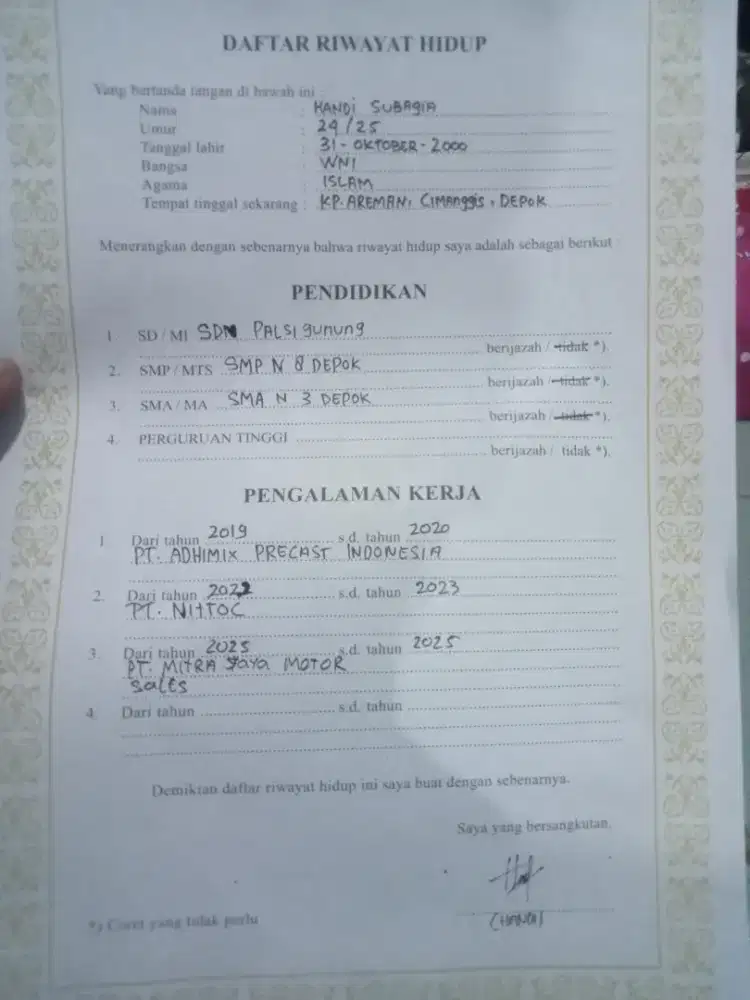 DAFTAR RIWAYAT HIDUP
Yang bertanda tangan di bawah ini :
Nama : HANDI SUBAGIA
Umur : 24/25
Tanggal lahir : 31 - OKTOBER - 2000
Bangsa : WNI
Agama : ISLAM
Tempat tinggal sekarang : KP. AREMAN, CIMANGGIS, DEPOK
Menerangkan dengan sebenarnya bahwa riwayat hidup saya adalah sebagai berikut :
PENDIDIKAN
1. SD / MI SDN PALSIgunung
berijazah / tidak *).
2. SMP / MTS SMP N 8 DEPOK
berijazah / tidak *).
3. SMA / MA SMA N 3 DEPOK
berijazah / tidak *).
4. PERGURUAN TINGGI
berijazah / tidak *).
PENGALAMAN KERJA
1. Dari tahun 2019 s.d. tahun 2020
PT. ADHIMIX PRECAST INDONESIA
2. Dari tahun 2022 s.d. tahun 2023
PT. NITTOC
3. Dari tahun 2025 s.d. tahun 2025
PT. MITRA JAYA MOTOR
Sales
4. Dari tahun s.d. tahun
Demikian daftar riwayat hidup ini saya buat dengan sebenarnya.
Saya yang bersangkutan,
(HANDI)
*) Coret yang tidak perlu